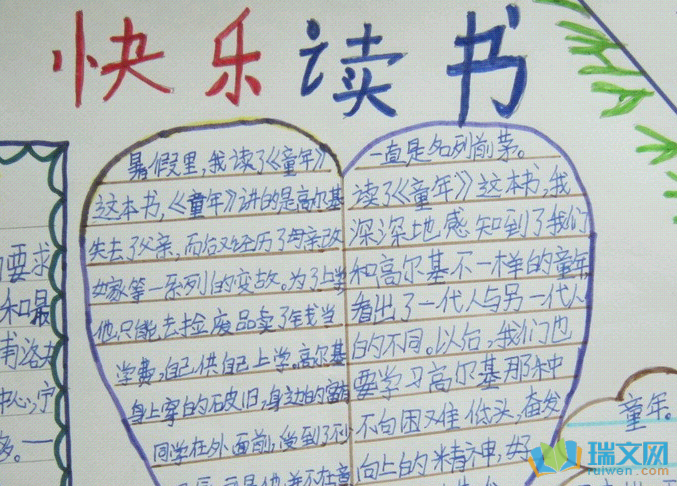 快乐读书
暑假里,我读了《童年》
这本书,《童年》讲的是高尔基
失去了父亲,而后又经历了母亲改
嫁等一系列的变故。为了上学
他只能去捡废品卖了钱当
学费,自己供自己上学。高尔基
身上穿的破旧,身边的富有
同学在外面前,受到了不少
一直是名列前茅。
读了《童年》这本书,我
深深地感知到了我们
和高尔基不一样的童年
看出了一代人与另一代人
的不同。以后,我们也
要学习高尔基那种
不向困难低头,奋发
向上的精神,好
要求
和最
洛夫
中心,宁
童年。
瑞文网
ruiwen.com